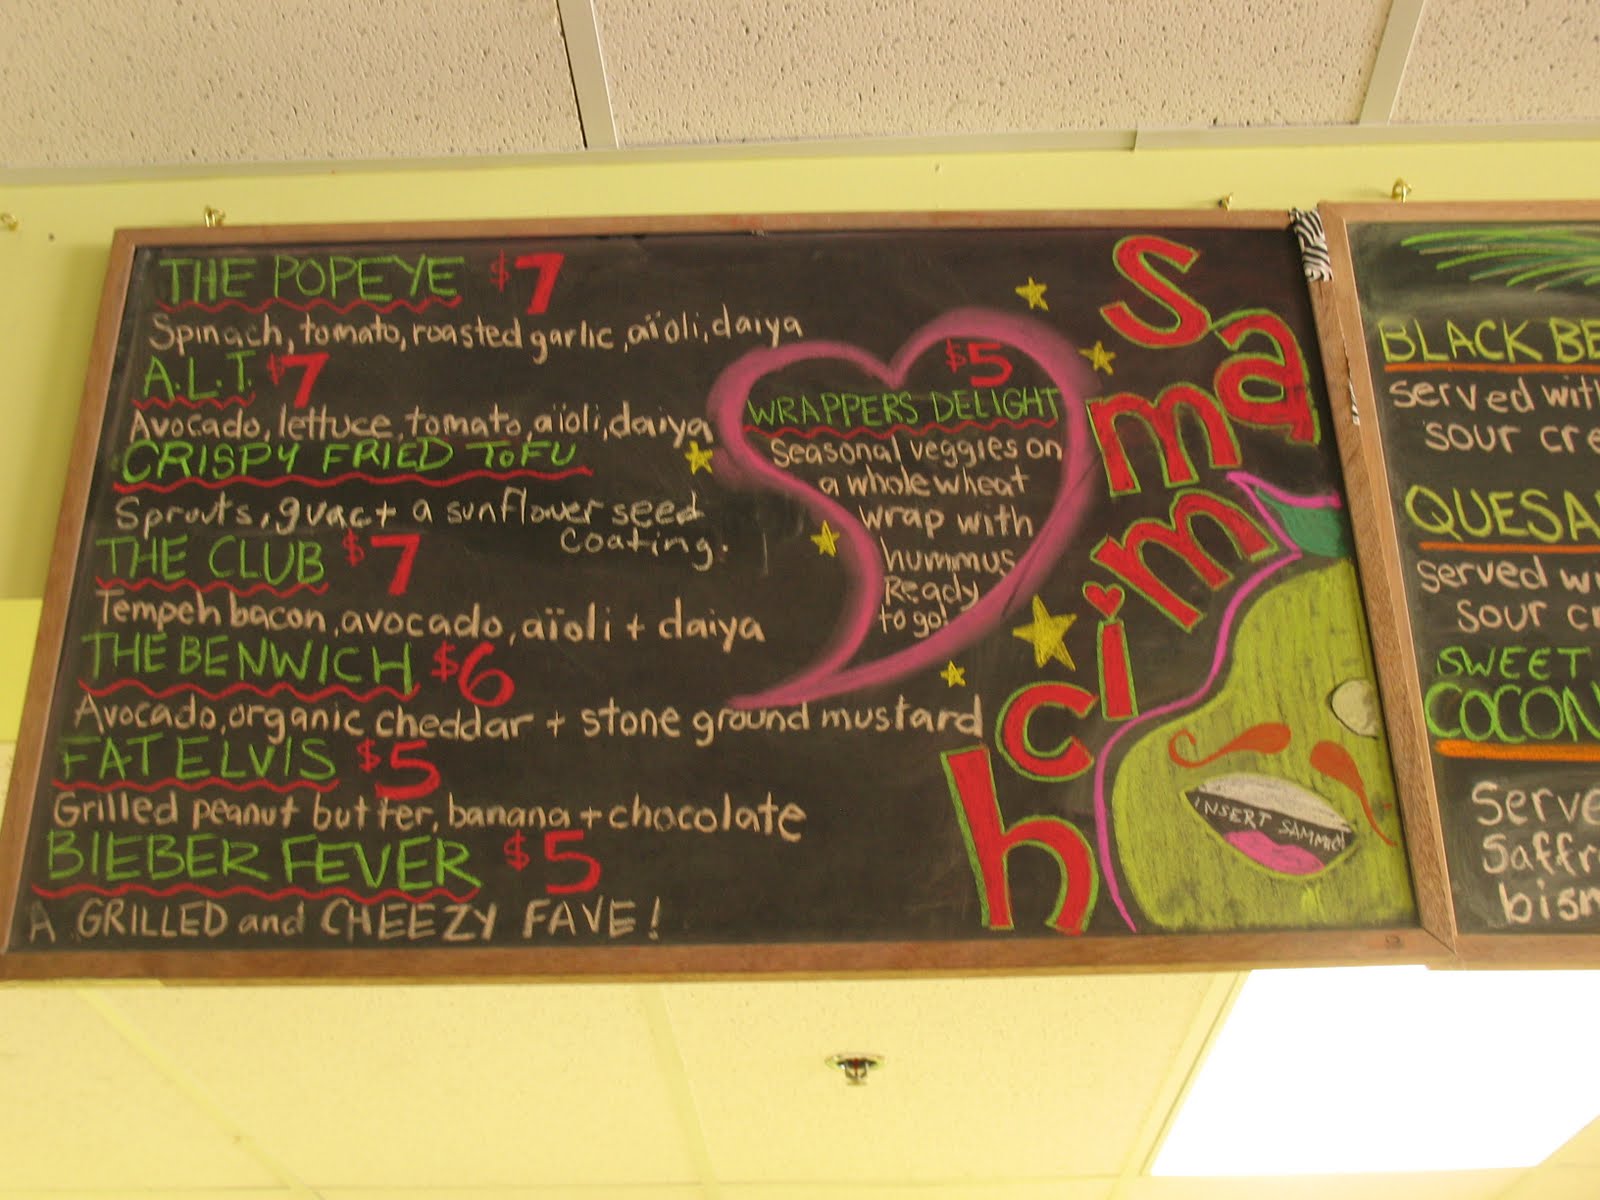 THE POPEYE $7
Spinach, tomato, roasted garlic, aïoli, daiya
A.L.T. $7
Avocado, lettuce, tomato, aïoli, daiya
CRISPY FRIED ToFU
Sprouts, guac + a sunflower seed
coating.
THE CLUB $7
Tempeh bacon, avocado, aïoli + daiya
THE BENWICH $6
Avocado, organic cheddar + stone ground mustard
FAT ELVIS $5
Grilled peanut butter, banana + chocolate
BIEBER FEVER $5
A GRILLED and CHEEZY FAVE!
$5
WRAPPERS DELIGHT
Seasonal veggies on
a whole wheat
wrap with
hummus
Ready
to go!
Sammich
INSERT SAMMICH
BLACK BE
served with
sour cre
QUESA
served wi
sour cr
SWEET
COCON
Serve
Saffr
bism